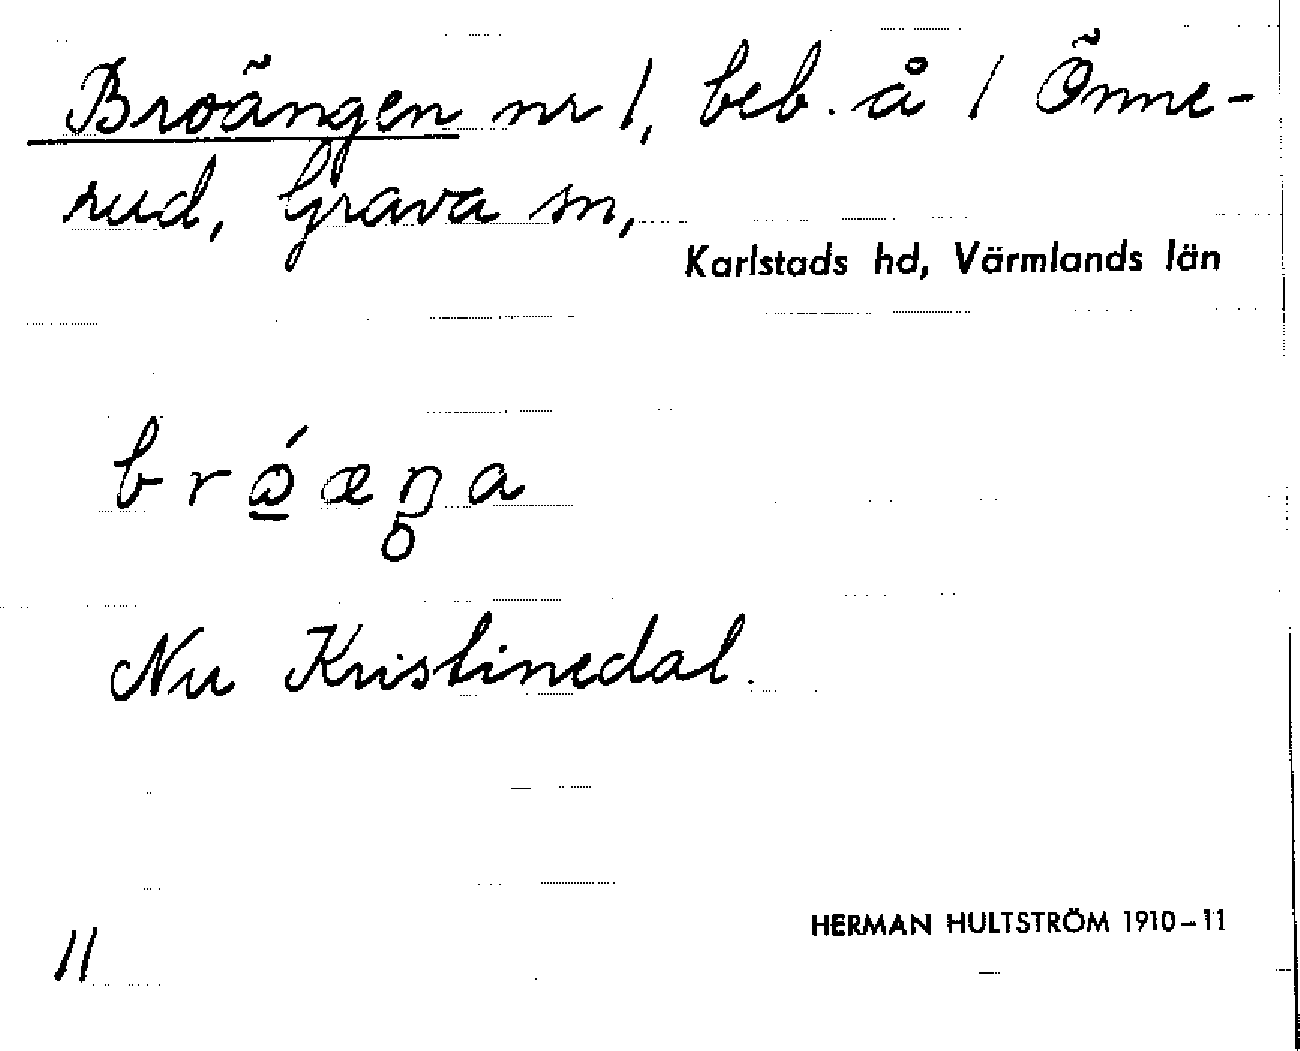 Broängen nr 1, beb. å 1 Önne-
rud, Grava sn,
Karlstads hd, Värmlands län
brǿ̱æŋa
Nu Kristinedal.
HERMAN HULTSTRÖM 1910–11
11